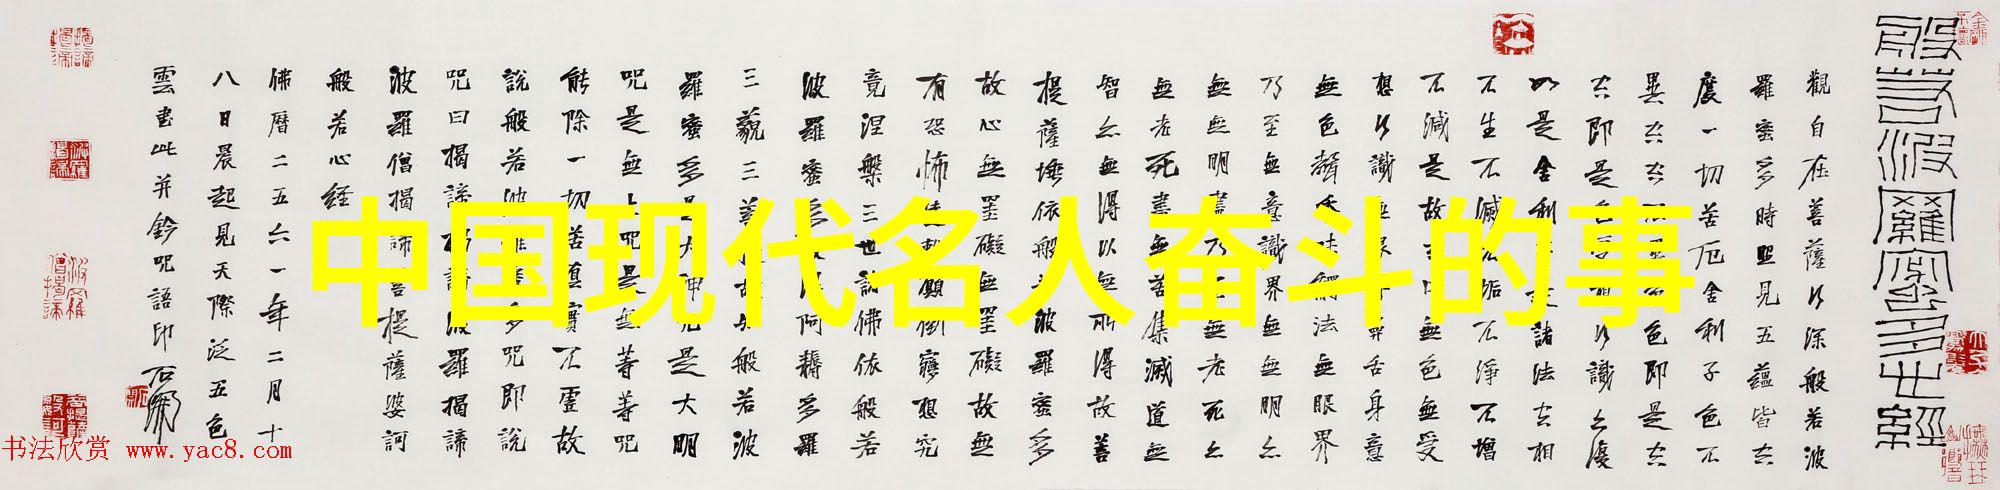 中国现代名人奋斗的事
般若波羅蜜多心經
觀自在菩薩行深般若波
羅蜜多時照見五蘊皆空
度一切苦厄舍利子色不
異空空不異色色即是空
空即是色受想行識亦復
如是舍利子是諸法空相
不生不滅不垢不淨不增
不減是故空中無色無受
想行識無眼耳鼻舌身意
無色聲香味觸法無眼界
乃至無意識界無無明亦
無無明盡乃至無老死亦
無老死盡無苦集滅道無
智亦無得以無所得故菩
提薩埵依般若波羅蜜多
故心無罣礙無罣礙故無
有恐怖遠離顛倒夢想究
竟涅槃三世諸佛依般若
波羅蜜多故得阿耨多羅
三藐三菩提故知般若波
羅蜜多是大神咒是大明
咒是無上咒是無等等咒
能除一切苦真實不虛故
說般若波羅蜜多咒即說
咒曰揭諦揭諦波羅揭諦
波羅僧揭諦菩提薩婆訶
般若心経
佛曆二五六一年二月十
八日晨起見天際泛五色
雲書此并鈐咒語印
书法欣赏 www.yac8.com